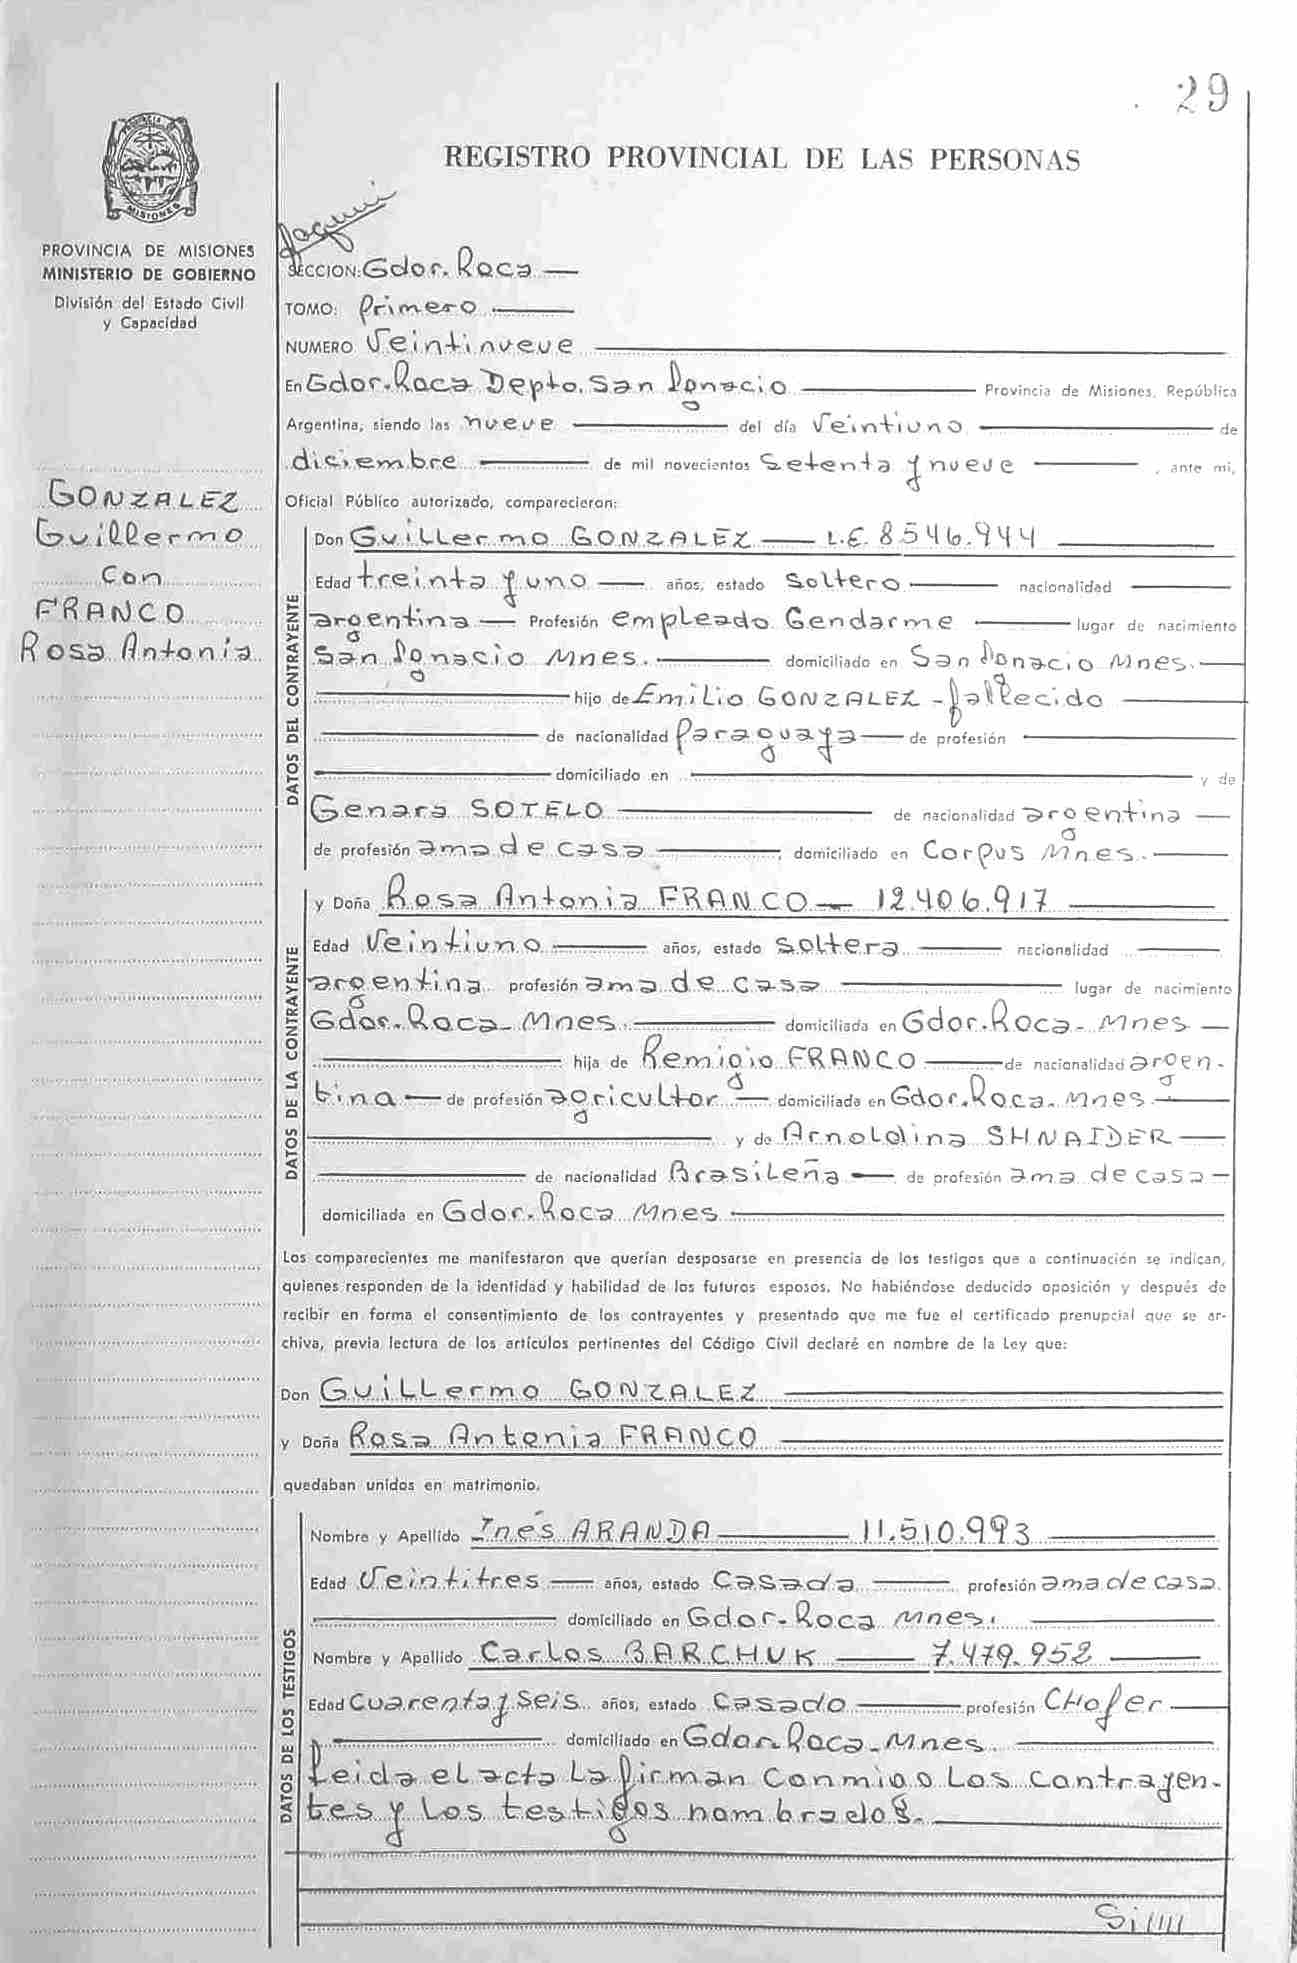 29
REGISTRO PROVINCIAL DE LAS PERSONAS
PROVINCIA DE
MISIONES
PROVINCIA DE MISIONES
MINISTERIO DE GOBIERNO
División del Estado Civil
y Capacidad
GONZALEZ
Guillermo
Con
FRANCO
Rosa Antonia
SECCION: Gdor. Roca —
TOMO: Primero
NUMERO Veintinueve
En Gdor. Roca Depto. San Ignacio Provincia de Misiones, República
Argentina, siendo las nueve del día Veintiuno de
diciembre de mil novecientos Setenta y nueve , ante mi,
Oficial Público autorizado, comparecieron:
DATOS DEL CONTRAYENTE
Don Guillermo GONZALEZ — L.E. 8546.944
Edad treinta y uno — años, estado Soltero nacionalidad
argentina — Profesión empleado Gendarme lugar de nacimiento
San Ignacio Mnes. domiciliado en San Ignacio Mnes.
hijo de Emilio GONZALEZ - fallecido
de nacionalidad Paraguaya — de profesión
domiciliado en y de
Genara SOTELO de nacionalidad argentina —
de profesión ama de casa , domiciliado en Corpus Mnes.
DATOS DE LA CONTRAYENTE
y Doña Rosa Antonia FRANCO — 12.406.917
Edad Veintiuno años, estado soltera nacionalidad
argentina profesión ama de casa lugar de nacimiento
Gdor. Roca - Mnes. domiciliada en Gdor. Roca - Mnes —
hija de Remigio FRANCO de nacionalidad argen-
tina — de profesión agricultor — domiciliada en Gdor. Roca. Mnes —
y de Arnoldina SHNAIDER —
de nacionalidad Brasileña — de profesión ama de casa —
domiciliada en Gdor. Roca Mnes
Los comparecientes me manifestaron que querían desposarse en presencia de los testigos que a continuación se indican,
quienes responden de la identidad y habilidad de los futuros esposos. No habiéndose deducido oposición y después de
recibir en forma el consentimiento de los contrayentes y presentado que me fue el certificado prenupcial que se ar-
chiva, previa lectura de los artículos pertinentes del Código Civil declaré en nombre de la Ley que:
Don Guillermo GONZALEZ
y Doña Rosa Antonia FRANCO
quedaban unidos en matrimonio.
DATOS DE LOS TESTIGOS
Nombre y Apellido Inés ARANDA 11.510.993
Edad Veintitres — años, estado Casada profesión ama de casa.
domiciliado en Gdor. Roca Mnes.
Nombre y Apellido Carlos BARCHUK 7.479.952
Edad Cuarenta y Seis años, estado Casado profesión CHofer
domiciliado en Gdor. Roca - Mnes.
Leida el acta la firman Conmigo Los Contrayen-
tes y Los testigos nombrados.